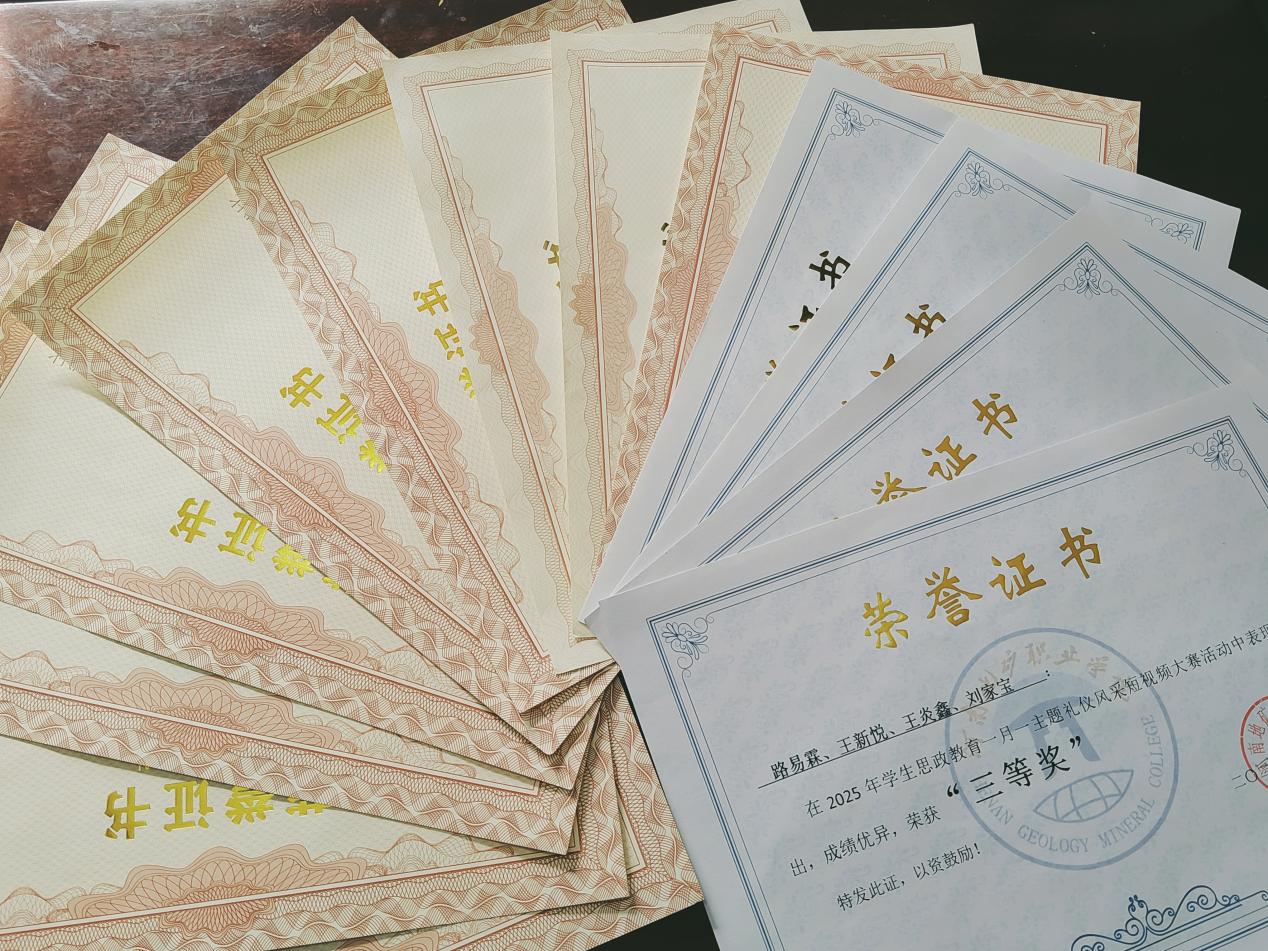 证书
证书
证书
荣誉证书
誉证书
誉证书
书
书
誉证书
荣誉证书
路易霖、王新悦、王炎鑫、刘家宝：
在 2025 年学生思政教育一月一主题礼仪风采短视频大赛活动中表现
出，成绩优异，荣获“三等奖”
特发此证，以资鼓励！
职业学
GEOLOGY MINERAL COLLEGE
二〇